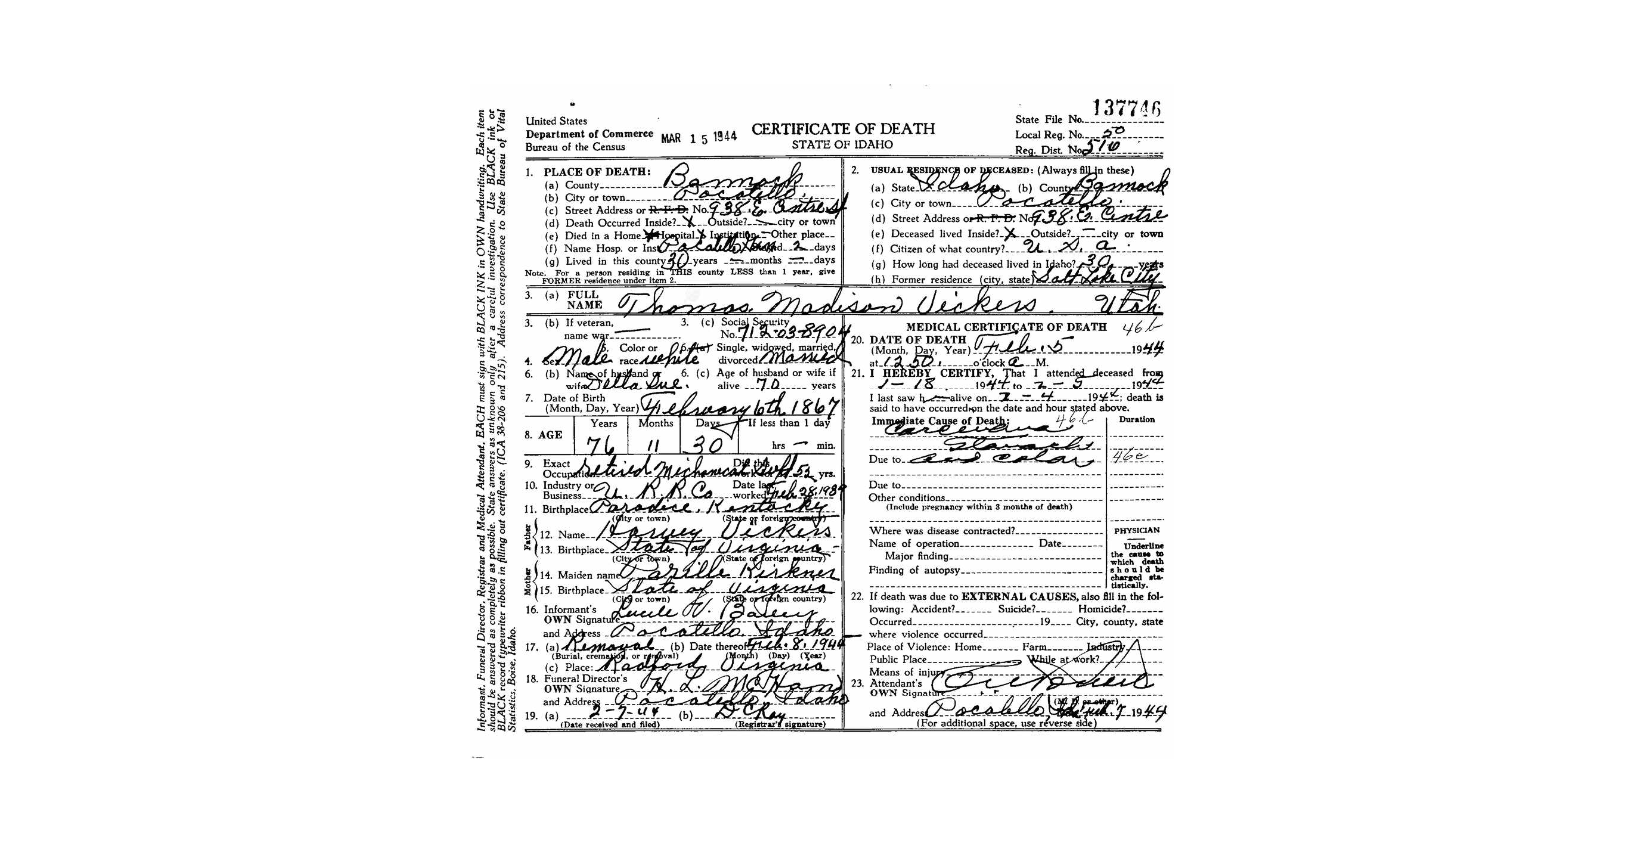 137746
United States
Department of Commerce
Bureau of the Census
MAR 15 1944
CERTIFICATE OF DEATH
STATE OF IDAHO
State File No.
Local Reg. No. 50
Reg. Dist. No. 510
Informant, Funeral Director, Registrar and Medical Attendant. EACH must sign with BLACK INK in OWN handwriting. Each item
should be answered as completely as possible. State answers as unknown only after a careful investigation. Use BLACK ink or
BLACK record typewriter ribbon in filling out certificate. (ICA 38-206 and 215). Address correspondence to State Bureau of Vital
Statistics, Boise, Idaho.
1. PLACE OF DEATH:
(a) County Bannock
(b) City or town Pocatello
(c) Street Address or R. F. D. No. 938 E. Centre St
(d) Death Occurred Inside? X Outside? city or town
(e) Died in a Home Hospital X Institution Other place
(f) Name Hosp. or Inst. Pocatello 2 days
(g) Lived in this county 30 years months days
Note. For a person residing in THIS county LESS than 1 year, give
FORMER residence under Item 2.
2. USUAL RESIDENCE OF DECEASED: (Always fill in these)
(a) State Idaho (b) County Bannock
(c) City or town Pocatello
(d) Street Address or R. F. D. No. 938. E. Centre
(e) Deceased lived Inside? X Outside? — city or town
(f) Citizen of what country? U. S. A.
(g) How long had deceased lived in Idaho? 30 years
(h) Former residence (city, state) Salt Lake City
Utah
3. (a) FULL NAME Thomas Madison Vickers
3. (b) If veteran, name war
3. (c) Social Security No. 712-03-8904
4. Sex Male 5. Color or race white Single, widowed, married, divorced Married
6. (b) Name of husband or wife Della Sue 6. (c) Age of husband or wife if alive 70 years
7. Date of Birth (Month, Day, Year) February 6th 1867
8. AGE Years 76 Months 11 Days 30 If less than 1 day hrs — min.
9. Exact Occupation retired Mechanical 52 yrs.
10. Industry or Business U. R. R. Co Date last worked Feb 28, 1939
11. Birthplace Paradice, Kentucky
(City or town) (State or foreign country)
Father
12. Name Harvey Vickers
13. Birthplace State of Virginia
(City or town) (State or foreign country)
Mother
14. Maiden name Kirkner
15. Birthplace State of Virginia
(City or town) (State or foreign country)
16. Informant's OWN Signature Lucile V.
and Address Pocatello Idaho
17. (a) Removal (b) Date thereof Feb. 8, 1944
(Burial, cremation, or removal) (Month) (Day) (Year)
(c) Place: Radford, Virginia
18. Funeral Director's OWN Signature
and Address Pocatello, Idaho
19. (a) 2-7-44 (b) D C Ray
(Date received and filed) (Registrar's signature)
MEDICAL CERTIFICATE OF DEATH 46b
20. DATE OF DEATH
(Month, Day, Year) Feb. 5 1944
at 12 50 o'clock a M.
21. I HEREBY CERTIFY, That I attended deceased from
1-18 1944 to 2-5 1944
I last saw h alive on 2-4 1944; death is
said to have occurred on the date and hour stated above.
Immediate Cause of Death: 46b Duration
Carcinoma
Stomach
Due to and colon 46c
Due to
Other conditions
(Include pregnancy within 3 months of death)
Where was disease contracted?
Name of operation Date
Major finding
Finding of autopsy
PHYSICIAN
Underline
the cause to
which death
should be
charged sta-
tistically.
22. If death was due to EXTERNAL CAUSES, also fill in the fol-
lowing: Accident? Suicide? Homicide?
Occurred 19 City, county, state
where violence occurred
Place of Violence: Home Farm Industry
Public Place While at work?
Means of injury
23. Attendant's OWN Signature
(M. D. or other)
and Address Pocatello 7 1944
(For additional space, use reverse side)